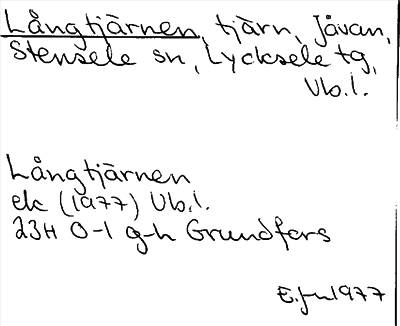 Långtjärnen, tjärn, Jåvan,
Stensele sn, Lycksele tg,
Vb.l.
Långtjärnen
ek (1977) Vb.l.
23H 0-1 g-h Grundfors
1977